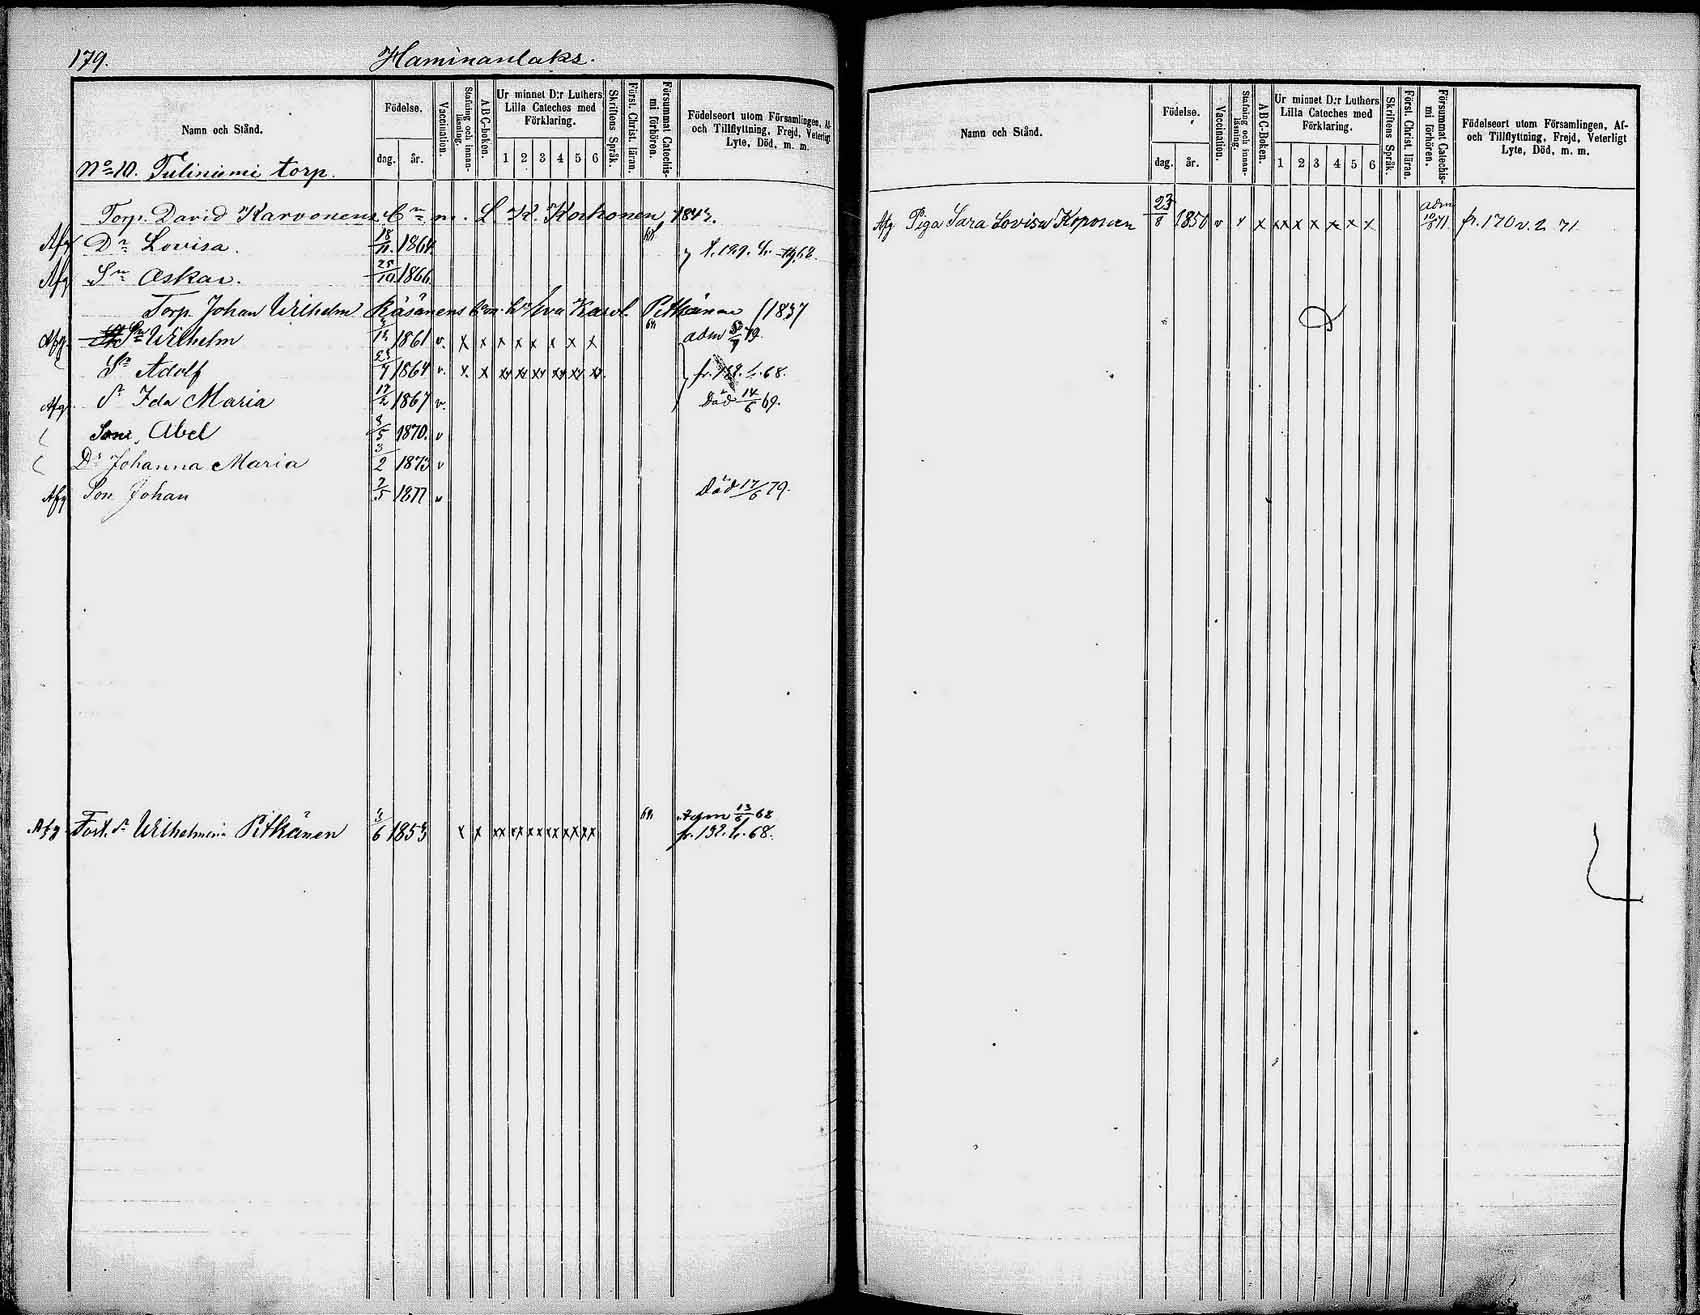 179. Haminanlaks.
Namn och Stånd.
Födelse.
dag. år.
Vaccination.
Stafning och innanläsning.
ABC-boken.
Ur minnet D:r Luthers Lilla Cateches med Förklaring.
1 2 3 4 5 6
Skriftens Språk.
Först. Christ. läran.
Försummat Catechismi förhören.
Födelseort utom Församlingen, Af-
och Tillflyttning, Frejd, Veterligt
Lyte, Död, m. m.
No 10. Tuliniemi torp.
Torp. David Karvonens L. K. Korhonen 1843.
Afg Dr Lovisa. 18/11 1864 68
Afg Sn Oskar. 25/10 1866
Torp. Johan Wilhelm Räsänens Eva Karol. Pitkänen 1837
Afg Sn Wilhelm 12 1861 v. x x x x x x x x adm 79.
Sn Adolf 1864 v. x x xx xx xx xx xx xx fr. 68.
Afg. Ida Maria 17/2 1867 v. Död 14/6 69.
Son, Abel 3/5 1870. v
Dr Johanna Maria 3/2 1873 v
Afg Son Johan 3/5 1877 v Död 17/6 79.
Afg Wilhelmina Pitkänen 3/6 1853 x x xx xx xx xx xx xx Adm 13/6 68
fr. 132. 68.
Namn och Stånd.
Födelse.
dag. år.
Vaccination.
Stafning och innanläsning.
ABC-Boken.
Ur minnet D:r Luthers Lilla Cateches med Förklaring.
1 2 3 4 5 6
Skriftens Språk.
Först. Christ. läran.
Försummat Catechismi förhören.
Födelseort utom Församlingen, Af-
och Tillflyttning, Frejd, Veterligt
Lyte, Död, m. m.
Afg Piga Sara Lovisa Koponen 23/8 1850 v x x xx x x x x x adm 10/8 71 fr. 170 v. 2 71